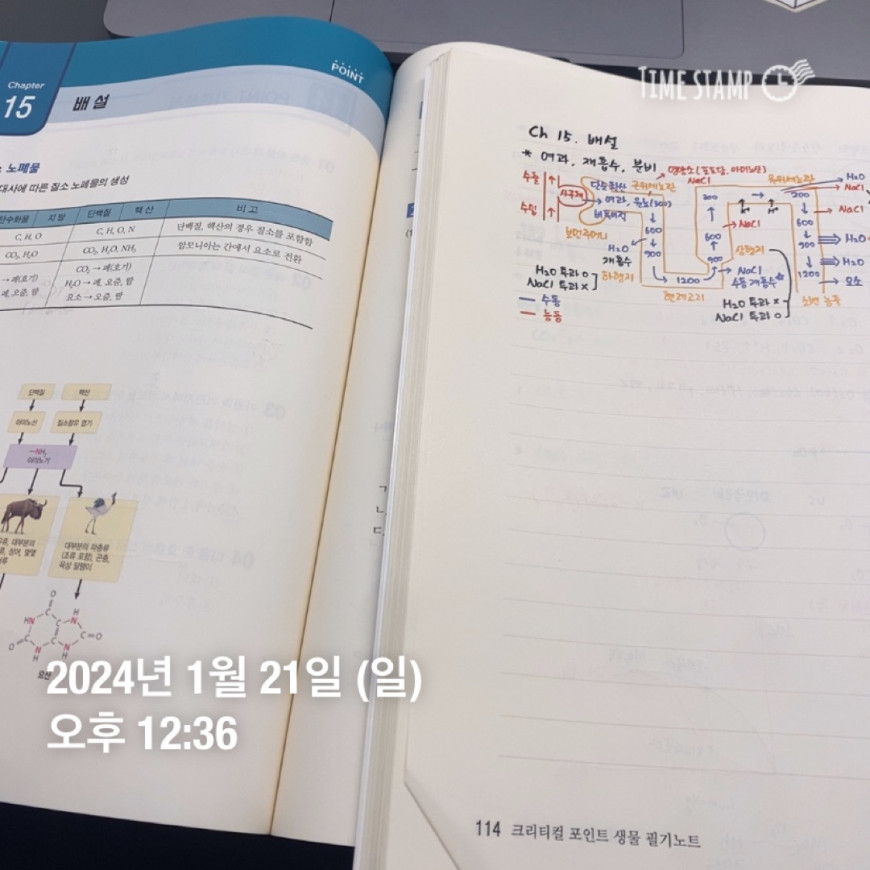 TIME STAMP
POINT
Chapter
15 배설
노폐물
대사에 따른 질소 노폐물의 생성
탄수화물 지방 단백질 핵산 비고
C, H, O C, H, O, N 단백질, 핵산의 경우 질소를 포함함
CO₂, H₂O CO₂, H₂O, NH₃ 암모니아는 간에서 요소로 전환
→ 폐(호기) CO₂ → 폐(호기)
폐, 오줌, 땀 H₂O → 폐, 오줌, 땀
요소 → 오줌, 땀
단백질 핵산
아미노산 질소함유 염기
—NH₂
아미노기
대부분의 대부분의 파충류
(조류 포함), 곤충,
육상 달팽이
O
HN C C N H
O C C C O
N H N H
요산
Ch 15. 배설
* 여과, 재흡수, 분비
수동
수입
사구체
단순확산
근위세뇨관
NaCl
원위세뇨관
H₂O
NaCl
여과, 원뇨(300)
300
200
NaCl
보먼주머니
600
900
H₂O
재흡수
600
900
500
800
H₂O
H₂O
1200
요소
1200
NaCl
수동 재흡수
H₂O 투과 O
NaCl 투과 X
하행지
헨레고리
상행지
H₂O 투과 X
NaCl 투과 O
수동
능동
2024년 1월 21일 (일)
오후 12:36
114 크리티컬 포인트 생물 필기노트